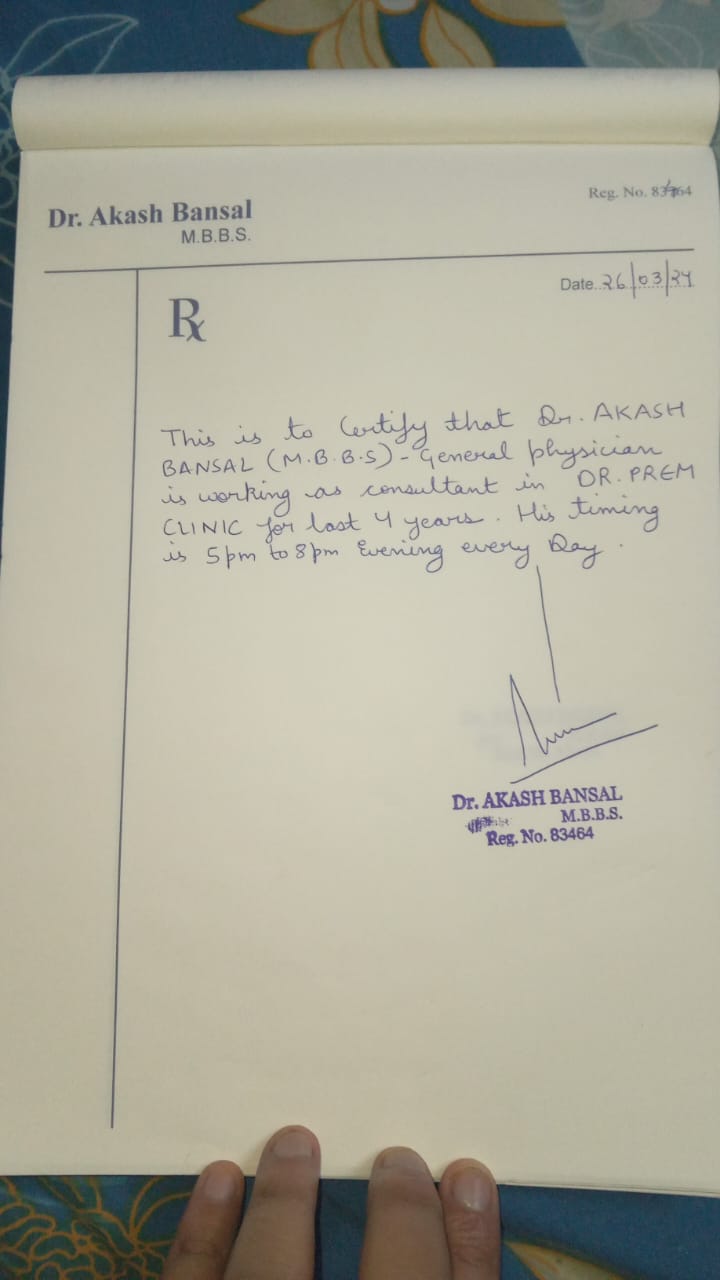 Dr. Akash Bansal
M.B.B.S.
Reg. No. 83464
Date..26/03/24
Rx
This is to Certify that Dr. AKASH
BANSAL (M.B.B.S) - General physician
is working as consultant in DR. PREM
CLINIC for last 4 years. His timing
is 5pm to 8pm Evening every Day.
Dr. AKASH BANSAL
M.B.B.S.
Reg. No. 83464